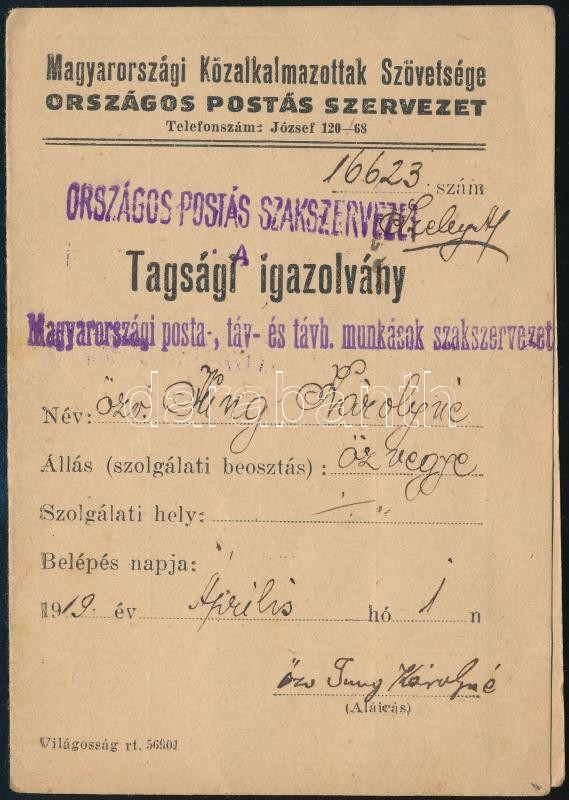 Magyarországi Közalkalmazottak Szövetsége
ORSZÁGOS POSTÁS SZERVEZET
Telefonszám: József 120—68
16623 szám
ORSZÁGOS POSTÁS SZAKSZERVEZET
A
Tagsági igazolvány
Magyarországi posta-, táv- és távb. munkások szakszervezet
darabanth
Név: özv. Károlyné
Állás (szolgálati beosztás): özvegye
Szolgálati hely:
Belépés napja:
1919. év Április hó 1 n
özv Károlyné
(Aláírás)
Világosság rt. 56901